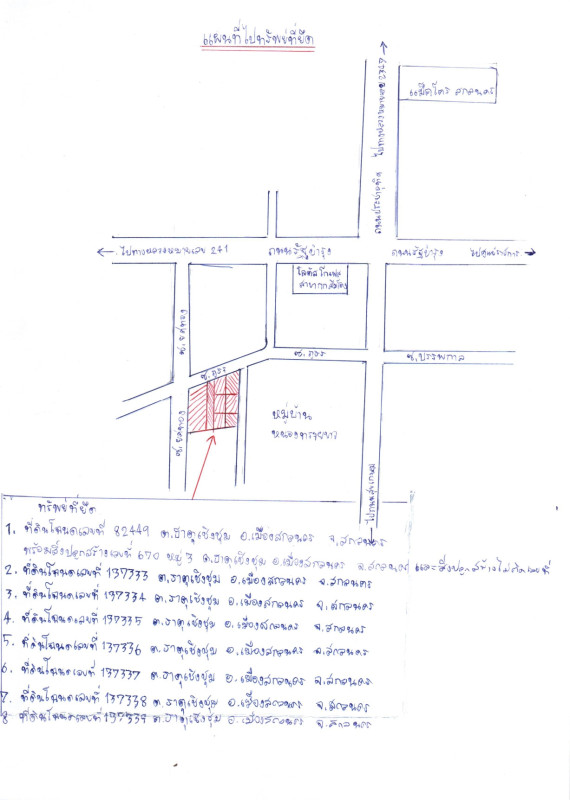 แผนที่ไปทรัพย์ที่ยึด
แม็คโคร สกลนคร
ถนนประชาอุทิศ ไปทางหลวงหมายเลข
ไปทางหลวงหมายเลข 241
ถนนรัฐบำรุง
ถนนรัฐบำรุง
ไปศูนย์ราชการ
โลตัส
สาขา
ซ.ยศทอง
ซ.ภูธร
ซ.ภูธร
ซ.บรรพกาล
ซ.ยศทอง
หมู่บ้าน
หนองทรายขาว
ทรัพย์ที่ยึด
1. ที่ดินโฉนดเลขที่ 82449 ต.ธาตุเชิงชุม อ.เมืองสกลนคร จ.สกลนคร
พร้อมสิ่งปลูกสร้างเลขที่ 670 หมู่ 3 ต.ธาตุเชิงชุม อ.เมืองสกลนคร จ.สกลนคร และสิ่งปลูกสร้างไม่มีเลขที่
2. ที่ดินโฉนดเลขที่ 137333 ต.ธาตุเชิงชุม อ.เมืองสกลนคร จ.สกลนคร
3. ที่ดินโฉนดเลขที่ 137334 ต.ธาตุเชิงชุม อ.เมืองสกลนคร จ.สกลนคร
4. ที่ดินโฉนดเลขที่ 137335 ต.ธาตุเชิงชุม อ.เมืองสกลนคร จ.สกลนคร
5. ที่ดินโฉนดเลขที่ 137336 ต.ธาตุเชิงชุม อ.เมืองสกลนคร จ.สกลนคร
6. ที่ดินโฉนดเลขที่ 137337 ต.ธาตุเชิงชุม อ.เมืองสกลนคร จ.สกลนคร
7. ที่ดินโฉนดเลขที่ 137338 ต.ธาตุเชิงชุม อ.เมืองสกลนคร จ.สกลนคร
8 ที่ดินโฉนดเลขที่ 137339 ต.ธาตุเชิงชุม อ.เมืองสกลนคร จ.สกลนคร